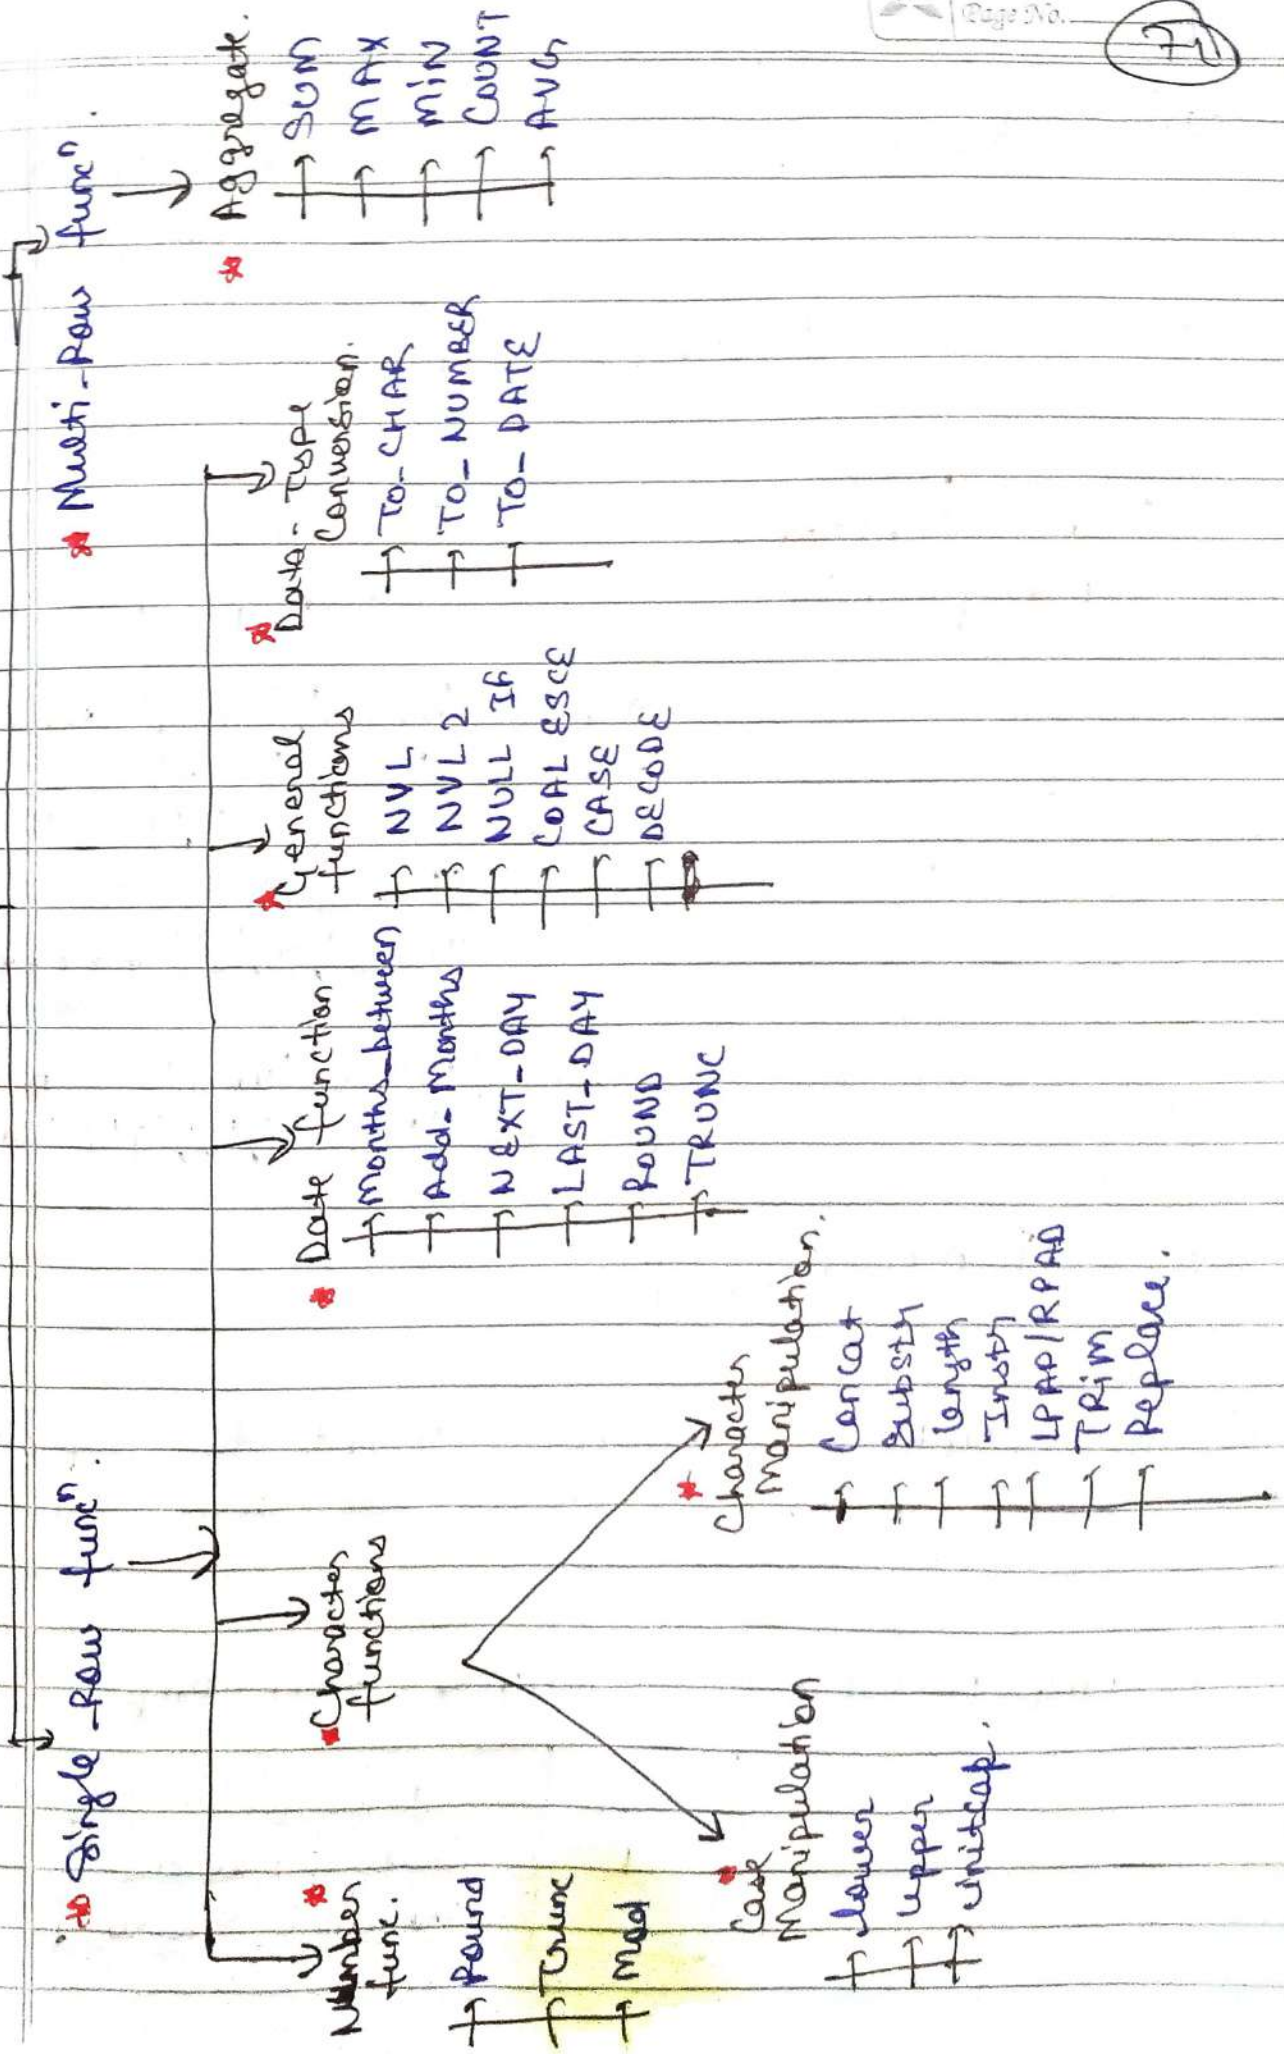 Page No.
71
* Single-Row funcⁿ.
* Multi-Row funcⁿ.
* Number func.
Round
Trunc
Mod
* Character
functions
* Case
Manipulation
lower
upper
initcap.
* Character
Manipulation.
Concat
Substr
length
Instr
LPAD/RPAD
TRIM
Replace.
* Date function.
Months_between
Add_Months
NEXT_DAY
LAST_DAY
ROUND
TRUNC
* General
functions
NVL
NVL 2
NULL IF
COALESCE
CASE
DECODE
* Data-Type
Conversion.
TO_CHAR
TO_NUMBER
TO_DATE
* Aggregate.
SUM
MAX
MIN
COUNT
AVG